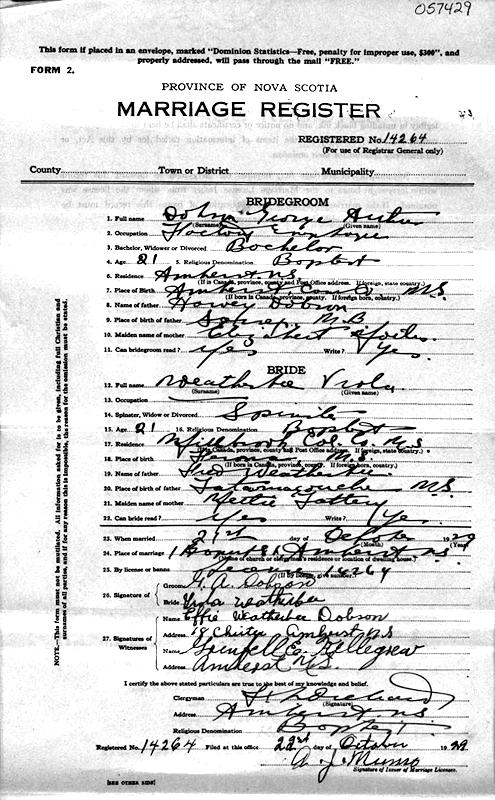 057429
This form if placed in an envelope, marked "Dominion Statistics—Free, penalty for improper use, $300", and
properly addressed, will pass through the mail "FREE."
FORM 2.
PROVINCE OF NOVA SCOTIA
MARRIAGE REGISTER
REGISTERED No. 14264
(For use of Registrar General only)
County Town or District Municipality
BRIDEGROOM
1. Full name Dobson George Arthur
(Surname) (Given name)
2. Occupation Factory Employee
3. Bachelor, Widower or Divorced Bachelor
4. Age 21 5. Religious Denomination Baptist
6. Residence Amherst NS
(If in Canada, province, county and Post Office address. If foreign, state country.)
7. Place of Birth Amherst, N.S.
(If born in Canada, province, county. If foreign born, country.)
8. Name of father Harvey Dobson
9. Place of birth of father N.B.
10. Maiden name of mother Elizabeth
11. Can bridegroom read? Yes Write? Yes.
BRIDE
12. Full name Weatherbee Viola
(Surname) (Given name)
13. Occupation
14. Spinster, Widow or Divorced Spinster
15. Age 21 16. Religious Denomination Baptist
17. Residence Millbrook Col. Co. N.S
(If in Canada, province, county and Post Office address. If foreign, state country.)
18. Place of Birth N.S.
(If born in Canada, province, county. If foreign born, country.)
19. Name of father Fred Weatherbee
20. Place of birth of father Tatamagouche N.S.
21. Maiden name of mother Nettie
22. Can bride read? Yes Write? Yes.
23. When married 21st day of October 1929
(Month) (Year)
24. Place of marriage Amherst NS
(Name of church or clergyman's residence or location of dwelling house.)
25. By license or banns License 14264
(If by license, give number.)
26. Signature of Groom G. A. Dobson
Bride Viola Weatherbee
27. Signatures of Witnesses
Name Effie Weatherbee Dobson
Address 18 Christie Amherst N.S
Name Grenfell C. Pellegrew
Address Amherst N.S.
I certify the above stated particulars are true to the best of my knowledge and belief.
Clergyman
(Signature)
Address Amherst NS
Religious Denomination Baptist
Registered No. 14264 Filed at this office 22nd day of October 1929
A. J. Munro
Signature of Issuer of Marriage Licenses.
[SEE OTHER SIDE]
NOTE—This form must not be mutilated. All information asked for is to be given, including full Christian and
surnames of all parties, and if for any reason this is impossible, the reason for the omission must be stated.